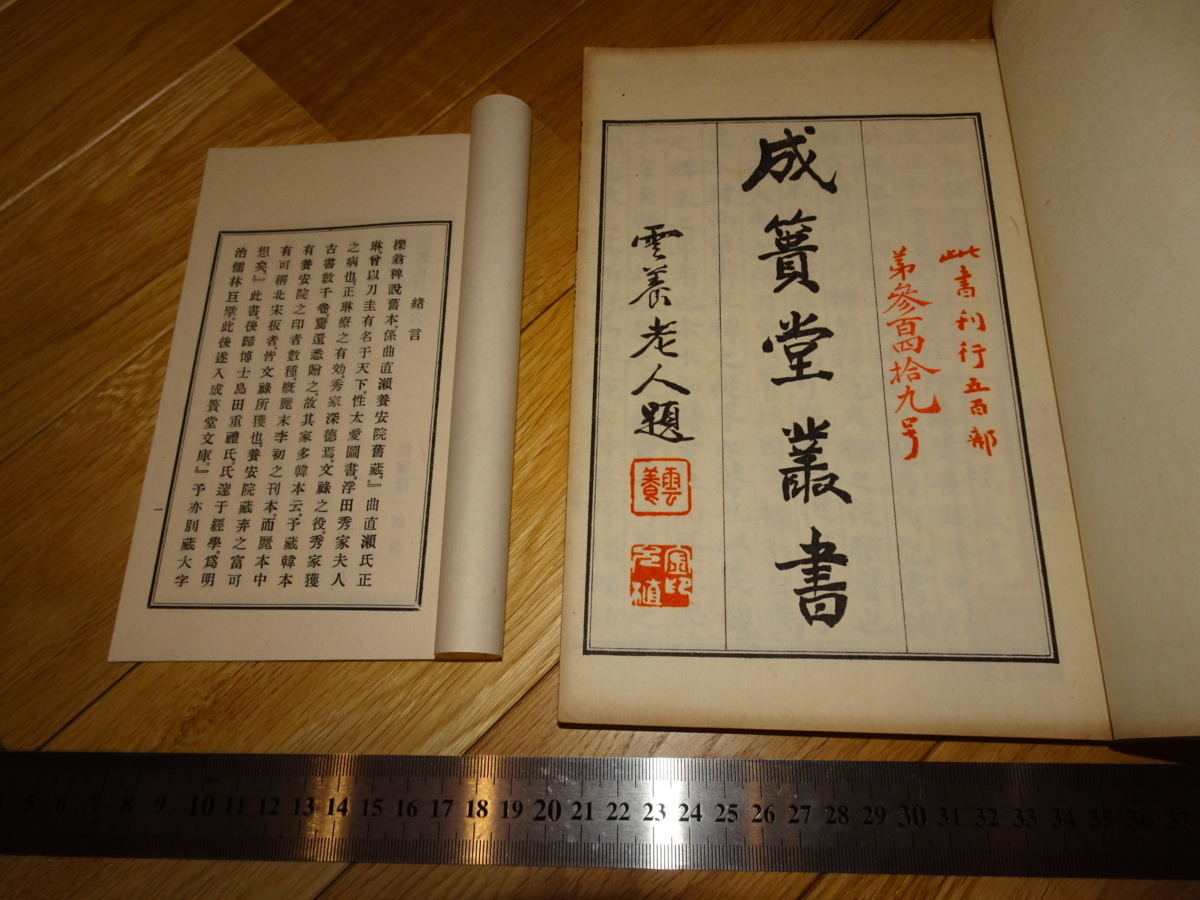 緒言
櫟翁稗說舊本、係曲直瀨養安院舊藏。』曲直瀨氏正
琳、曾以刀圭有名于天下、性太愛圖書、浮田秀家夫人
之病也、正琳療之有効、秀家深德焉、文祿之役、秀家獲
古書數千卷、齎還悉贈之、故其家多韓本云、予藏韓本
有養安院之印者數種、槪麗末李初之刊本、而麗本中
有可稱北宋板者、皆文祿所獲也、養安院藏弆之富可
想矣。』此書後歸博士島田重禮氏、氏邃于經學、爲明
治儒林巨擘、此後遂入成簣堂文庫。』予亦別藏大字
一
此書刊行五百部
第參百四拾九号
成簣堂叢書
雲養老人題
雲養
金允植印
5 6 7 8 9 10 11 12 13 14 15 16 17 18 19 20 21 22 23 24 25 26 27 28 29 30 31 32 33 34 35 36 37